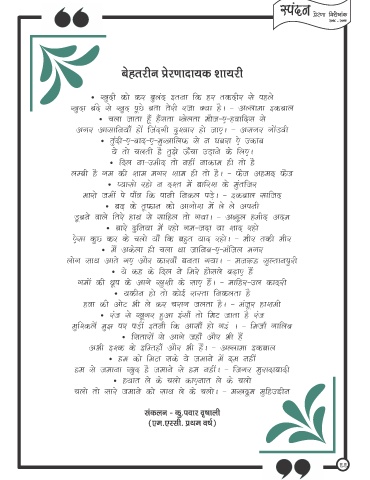 स्पंदन
बेहतरीन प्रेरणादायक शायरी
• खुदी को कर बुलंद इतना कि हर तकदीर से पहले
खुदा बंदे से खुद पूछे बता तेरी रजा क्या है। - अल्लामा इकबाल
• चला जाता हूँ हँसता खेलता मौज-ए-हवादिस से
अगर आसानियाँ हों जिंदगी दुश्वार हो जाए। - असगर गोंडवी
• तुंदी-ए-बाद-ए-मुखालिफ से न घबरा ए उकाब
ये तो चलती है तुझे ऊँचा उड़ाने के लिए।
• दिल ना-उमीद तो नहीं नाकाम ही तो है
लम्बी है गम की शाम मगर शाम ही तो है। - फैज अहमद फैज
• प्यासो रहो न दश्त में बारिश के मुंतजिर
मारो जमीं पे पाँव कि पानी निकल पड़े। - इकबाल साजिद
• बढ़ के तूफान को आगोश में ले ले अपनी
डूबने वाले तिरे हाथ से साहिल तो गया। - अब्दुल हमीद अदम
• बारे दुनिया में रहो गम-जदा या शाद रहो
ऐसा कुछ कर के चलो याँ कि बहुत याद रहो। - मीर तकी मीर
• मैं अकेला ही चला था जानिब-ए-मंजिल मगर
लोग साथ आते गए और कारवाँ बनता गया। - मजरूह सुल्तानपुरी
• ये कह के दिल ने मिरे हौसले बढ़ाए हैं
गमों की धूप के आगे खुशी के साए हैं। - माहिर-उल कादरी
• यकीन हो तो कोई रास्ता निकलता है
हवा की ओट भी ले कर चराग जलता है। - मंजूर हाशमी
• रंज से खूगर हुआ इंसाँ तो मिट जाता है रंज
मुश्किलें मुझ पर पड़ीं इतनी कि आसाँ हो गईं । - मिर्जा गालिब
• सितारों से आगे जहाँ और भी हैं
अभी इश्क के इम्तिहाँ और भी हैं। - अल्लामा इकबाल
• हम को मिटा सके ये जमाने में दम नहीं
हम से जमाना खुद है जमाने से हम नहीं। - जिगर मुरादाबादी
• हयात ले के चलो काएनात ले के चलो
चलो तो सारे जमाने को साथ ले के चलो। - मखदूम मुहिउद्दीन
संकलन - कु.पवार वृषाली
(एम.एससी. प्रथम वर्ष)